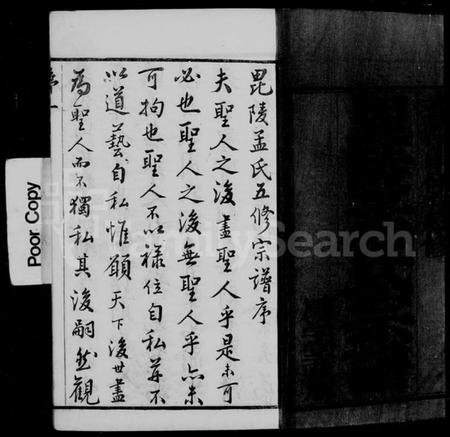 毘陵孟氏五修宗譜序
夫聖人之後盡聖人乎是未可
必也聖人之後無聖人乎亦未
可拘也聖人不以祿位自私并不
以道藝自私惟願天下後世盡
為聖人而不獨私其後嗣然觀
序一
Poor Copy
FamilySearch